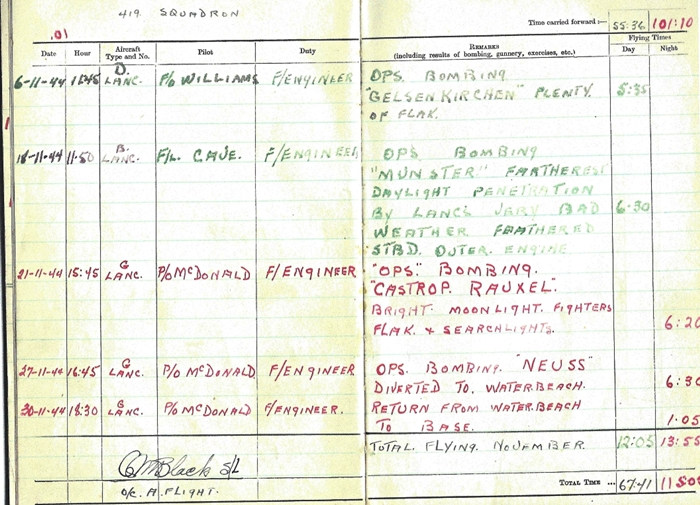 419 SQUADRON
.01
Time carried forward :— 55:36 101:10
Date Hour Aircraft Type and No. Pilot Duty REMARKS (including results of bombing, gunnery, exercises, etc.) Flying Times Day Night
6-11-44 11:45 D. LANC. P/O WILLIAMS F/ENGINEER OPS. BOMBING
"GELSENKIRCHEN" PLENTY 5:35
OF FLAK.
18-11-44 11:50 B. LANC. F/L. CAVE. F/ENGINEER OPS BOMBING
"MUNSTER" FARTHEREST
DAYLIGHT PENETRATION
BY LANC'S VERY BAD 6:30
WEATHER FEATHERED
STBD. OUTER. ENGINE
21-11-44 15:45 G LANC. P/O McDONALD F/ENGINEER "OPS." BOMBING.
"CASTROP. RAUXEL".
BRIGHT. MOONLIGHT. FIGHTERS
FLAK. & SEARCHLIGHTS. 6:20
27-11-44 16:45 G LANC. P/O McDONALD F/ENGINEER OPS. BOMBING. "NEUSS"
DIVERTED TO. WATERBEACH. 6:30
30-11-44 18:30 G LANC. P/O McDONALD F/ENGINEER. RETURN FROM WATERBEACH
TO BASE. 1.05
TOTAL. FLYING. NOVEMBER. 12:05 13:55
Black S/L
O/C. A. FLIGHT.
TOTAL TIME ... 67:41